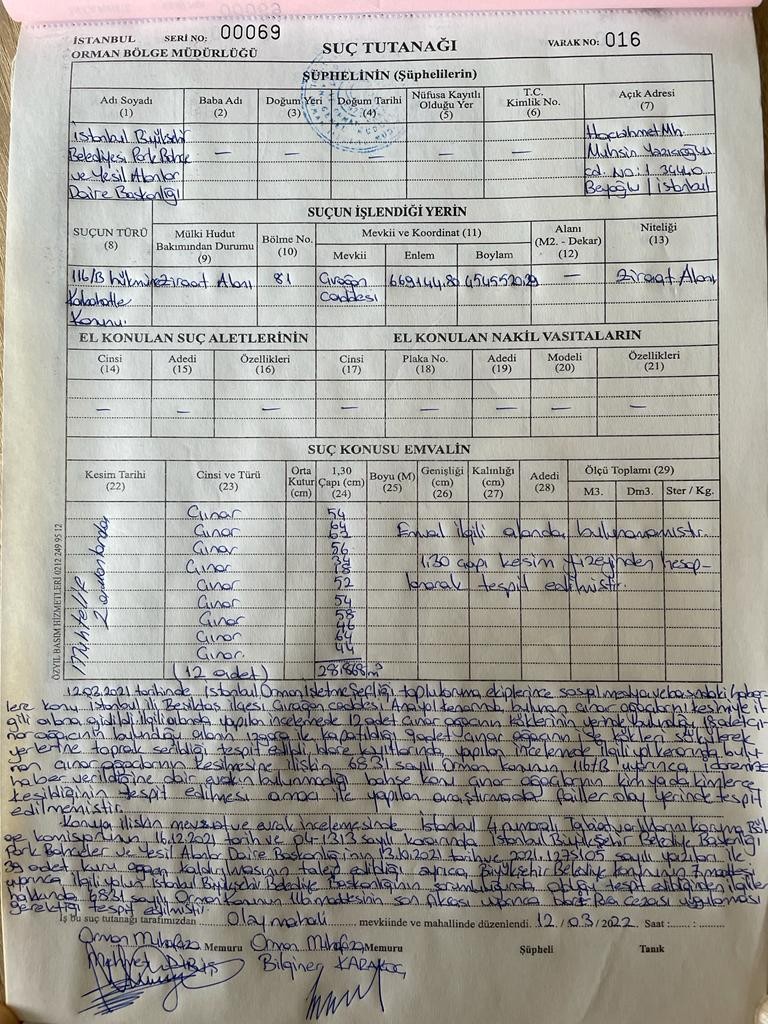 İSTANBUL SERİ NO: 00069
ORMAN BÖLGE MÜDÜRLÜĞÜ
SUÇ TUTANAĞI
VARAK NO: 016
ŞÜPHELİNİN (Şüphelilerin)
Adı Soyadı (1) Baba Adı (2) Doğum Yeri (3) Doğum Tarihi (4) Nüfusa Kayıtlı Olduğu Yer (5) T.C. Kimlik No. (6) Açık Adresi (7)
İstanbul Büyükşehir
Belediyesi Park Bahçe
ve Yeşil Alanlar
Daire Başkanlığı
— — — — —
Hacıahmet Mh.
Muhsin Yazıcıoğlu
cd. No:1 34440
Beyoğlu / İstanbul
SUÇUN İŞLENDİĞİ YERİN
SUÇUN TÜRÜ (8) Mülki Hudut Bakımından Durumu (9) Bölme No. (10) Mevkii ve Koordinat (11) Alanı (M2. - Dekar) (12) Niteliği (13)
Mevkii Enlem Boylam
116/B Ziraat Alanı 81 Çırağan 669144.80 — Ziraat Alanı
caddesi
EL KONULAN SUÇ ALETLERİNİN
EL KONULAN NAKİL VASITALARIN
Cinsi (14) Adedi (15) Özellikleri (16) Cinsi (17) Plaka No. (18) Adedi (19) Modeli (20) Özellikleri (21)
— — — — — — — —
SUÇ KONUSU EMVALİN
Kesim Tarihi (22) Cinsi ve Türü (23) Orta Kutur (cm) 1,30 Çapı (cm) (24) Boyu (M) (25) Genişliği (cm) (26) Kalınlığı (cm) (27) Adedi (28) Ölçü Toplamı (29)
M3. Dm3. Ster / Kg.
Muhtelif
Çınar 54
Çınar 64
62
Çınar 56
Çınar 34
18
Çınar 52
Çınar 54
Çınar 58
46
Çınar 64
Çınar 44
(12 adet) 28.868 m³
Emval ilgili alanda bulunamamıştır.
1.30 çapı kesim yüzeyinden hesap-
lanarak tespit edilmiştir.
ÖZYIL BASIM HİZMETLERİ 0212 249 95 12
12.03.2021 tarihinde İstanbul Orman İşletme Şefliği toplu koruma ekiplerince sosyal medya ve basındaki haber-
lere konu İstanbul ili Beşiktaş ilçesi Çırağan caddesi Anayol kenarında bulunan çınar ağaçların kesimiyle il-
gili alana gidildi. ilgili alanda yapılan incelemede 12 adet çınar ağacının köklerinin yerinde bulunduğu
ağacının bulunduğu alanın ile kapatıldığı adet çınar ağacının ise kökleri sökülerek
yerlerine toprak serildiği tespit edildi. idare kayıtlarında yapılan incelemede ilgili yol kenarında bulu-
nan çınar ağaçlarının kesilmesine ilişkin 6831 sayılı Orman kanunun 116/B uyarınca idaremize
haber verildiğine dair evrakın bulunmadığı bahse konu çınar ağaçlarının kim yada kimlerce
kesildiğinin tespit edilmesi amacı ile yapılan araştırmada failler olay yerinde tespit
edilmemiştir.
Konuya ilişkin mevzuat ve evrak incelemesinde İstanbul 4 numaralı Tabiat varlıklarını koruma Böl-
ge komisyonunun 16.12.2021 tarih ve 04-1313 sayılı kararında İstanbul Büyükşehir Belediye Başkanlığı
Park Bahçeler ve Yeşil Alanlar Daire Başkanlığının 13.10.2021 tarih ve 2021.1275105 sayılı yazıları ile
39 adet kuru ağacın kaldırılmasının talep edildiği ayrıca Büyükşehir Belediye kanununun 7.maddesi
uyarınca ilgili yolun İstanbul Büyükşehir Belediye Başkanlığının sorumluluğunda olduğu tespit edildiğinden ilgililer
hakkında 6831 sayılı Orman Kanunun 116 maddesinin son fıkrası uyarınca İdari Para Cezası uygulanması
gerektiği tespit edilmiştir.
İş bu suç tutanağı tarafımızdan Olay mahali mevkiinde ve mahallinde düzenlendi. 12 / 03 / 2022 Saat : ..... : .....
Orman Muhafaza Memuru Orman Muhafaza Memuru Şüpheli Tanık
Mehmet Bilginer KARAKOÇ